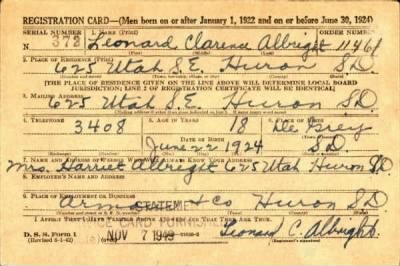 REGISTRATION CARD—(Men born on or after January 1, 1922 and on or before June 30, 1924)
SERIAL NUMBER 1. NAME (Print) ORDER NUMBER
N 373 Leonard Clarence Albright 11461
2. PLACE OF RESIDENCE (Print)
625 Utah S.E. Huron S.D.
[THE PLACE OF RESIDENCE GIVEN ON THE LINE ABOVE WILL DETERMINE LOCAL BOARD
JURISDICTION; LINE 2 OF REGISTRATION CERTIFICATE WILL BE IDENTICAL]
3. MAILING ADDRESS
625 Utah S.E. Huron S.D.
4. TELEPHONE 5. AGE IN YEARS 6. PLACE OF BIRTH
3408 18 De Grey
DATE OF BIRTH
June 22 1924 S.D.
7. NAME AND ADDRESS OF PERSON WHO WILL ALWAYS KNOW YOUR ADDRESS
Mrs. Harriet Albright 625 Utah Huron S.D.
8. EMPLOYER'S NAME AND ADDRESS
9. PLACE OF EMPLOYMENT OR BUSINESS
& Co Huron S.D.
STATEME
I AFFIRM THAT I HAVE VERIFIED ABOVE ANSWERS AND THAT THEY ARE TRUE.
D. S. S. Form 1
(Revised 6-1-42)
NOV 7 1949
Leonard C. Albright